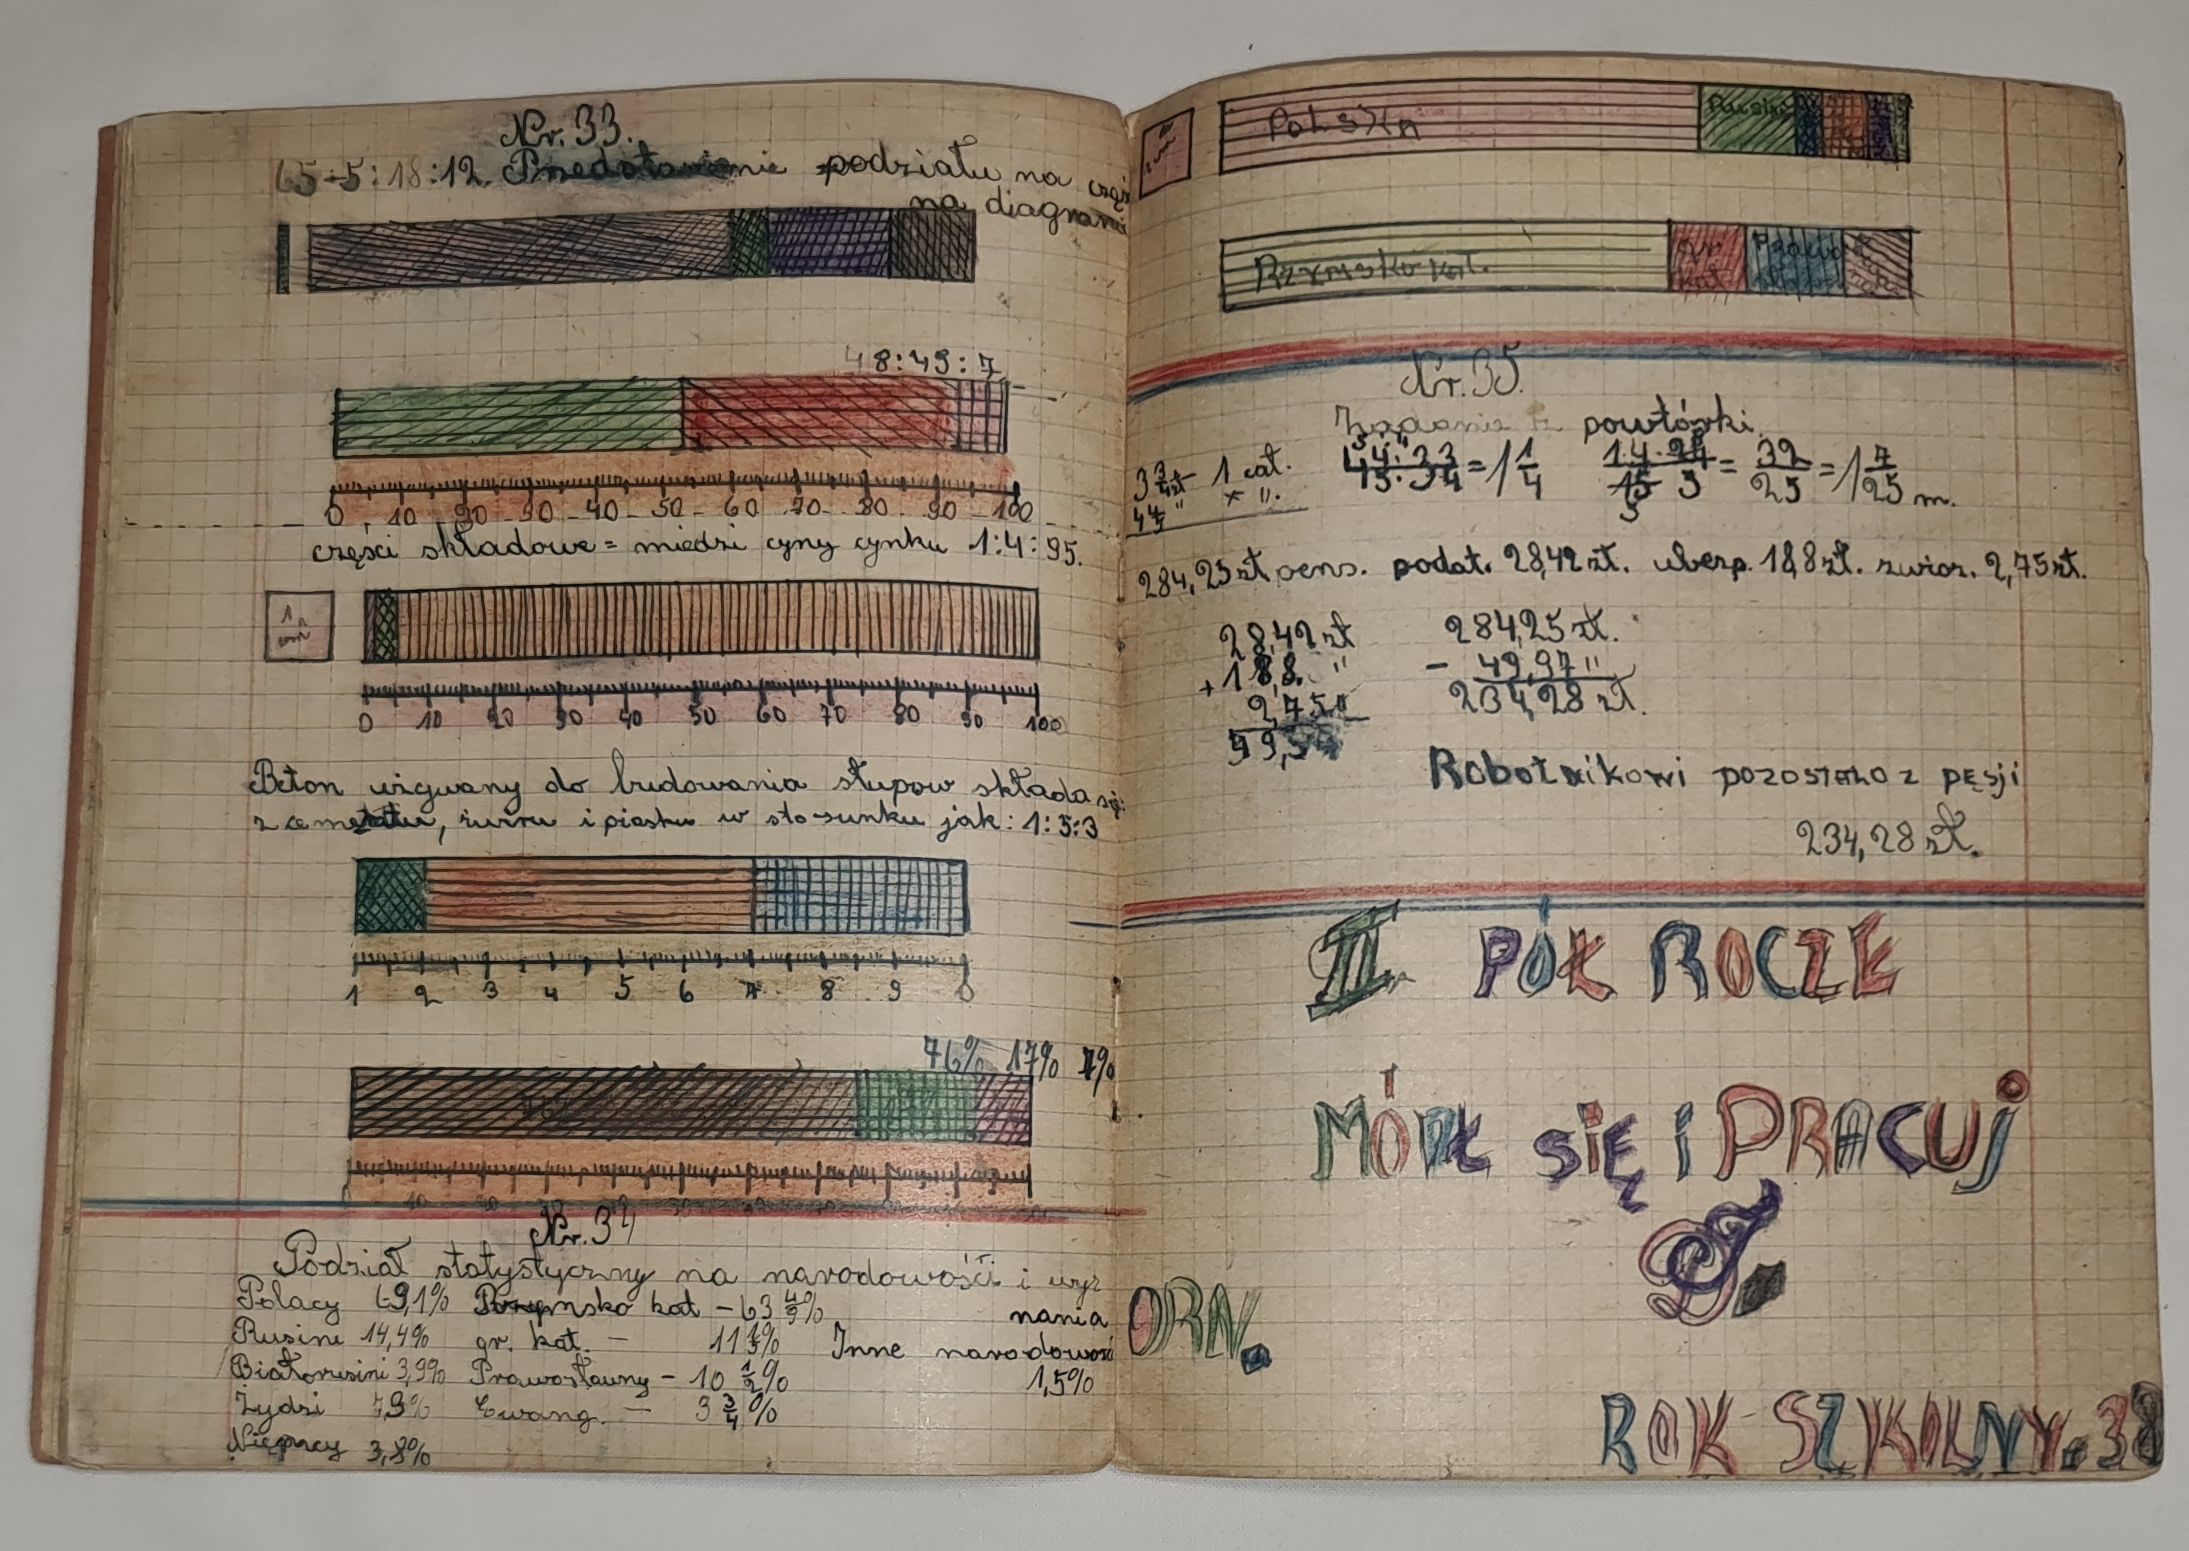 Nr. 33.
65:5:18:12. Przedstawienie podziału na częś
na diagrami
48:49:7
0 10 20 30 40 50 60 70 80 90 100
części składowe = miedzi cyny cynku 1:4:95.
1
0 10 20 30 40 50 60 70 80 90 100
Beton używany do budowania słupow składa się:
z cementu, żwiru i piasku w sto-sunku jak: 1:5:3
1 2 3 4 5 6 7 8 9 0
76% 17% 7%
Nr. 34
Podział statystyczny na narodowości i wyz
nania
Polacy 69,1% Rzymsko kat - 63 4/5%
Rusini 14,4% gr. kat. - 11 %
Inne narodowoś
Białorusini 3,9% Prawosławny - 10 1/2%
1,5%
Żydzi 7,3% Ewang. - 3 3/4%
Niemcy 3,8%
POLSKA Rusini
Rzymsko kat. gr kat Prawo
Nr. 35.
Zadania z powtórki.
3 3/4 zł - 1 cał.
4 4/5 " x ".
= 1 1/4
= 32/25 = 1 7/25 m.
284,25 zł pens. podat. 28,42 zł. ubezp. 18,8 zł. związ. 2,75 zł.
28,42 zł
+ 18,8. "
2,75 "
284,25 zł.
- 49,97 "
234,28 zł.
Robotnikowi POZOSTAŁO Z PĘSJI
234,28 zł.
II. PÓŁ ROCZE
MÓDŁ SIĘ i PRACUJ
ORN.
ROK SZKOLNY. 38